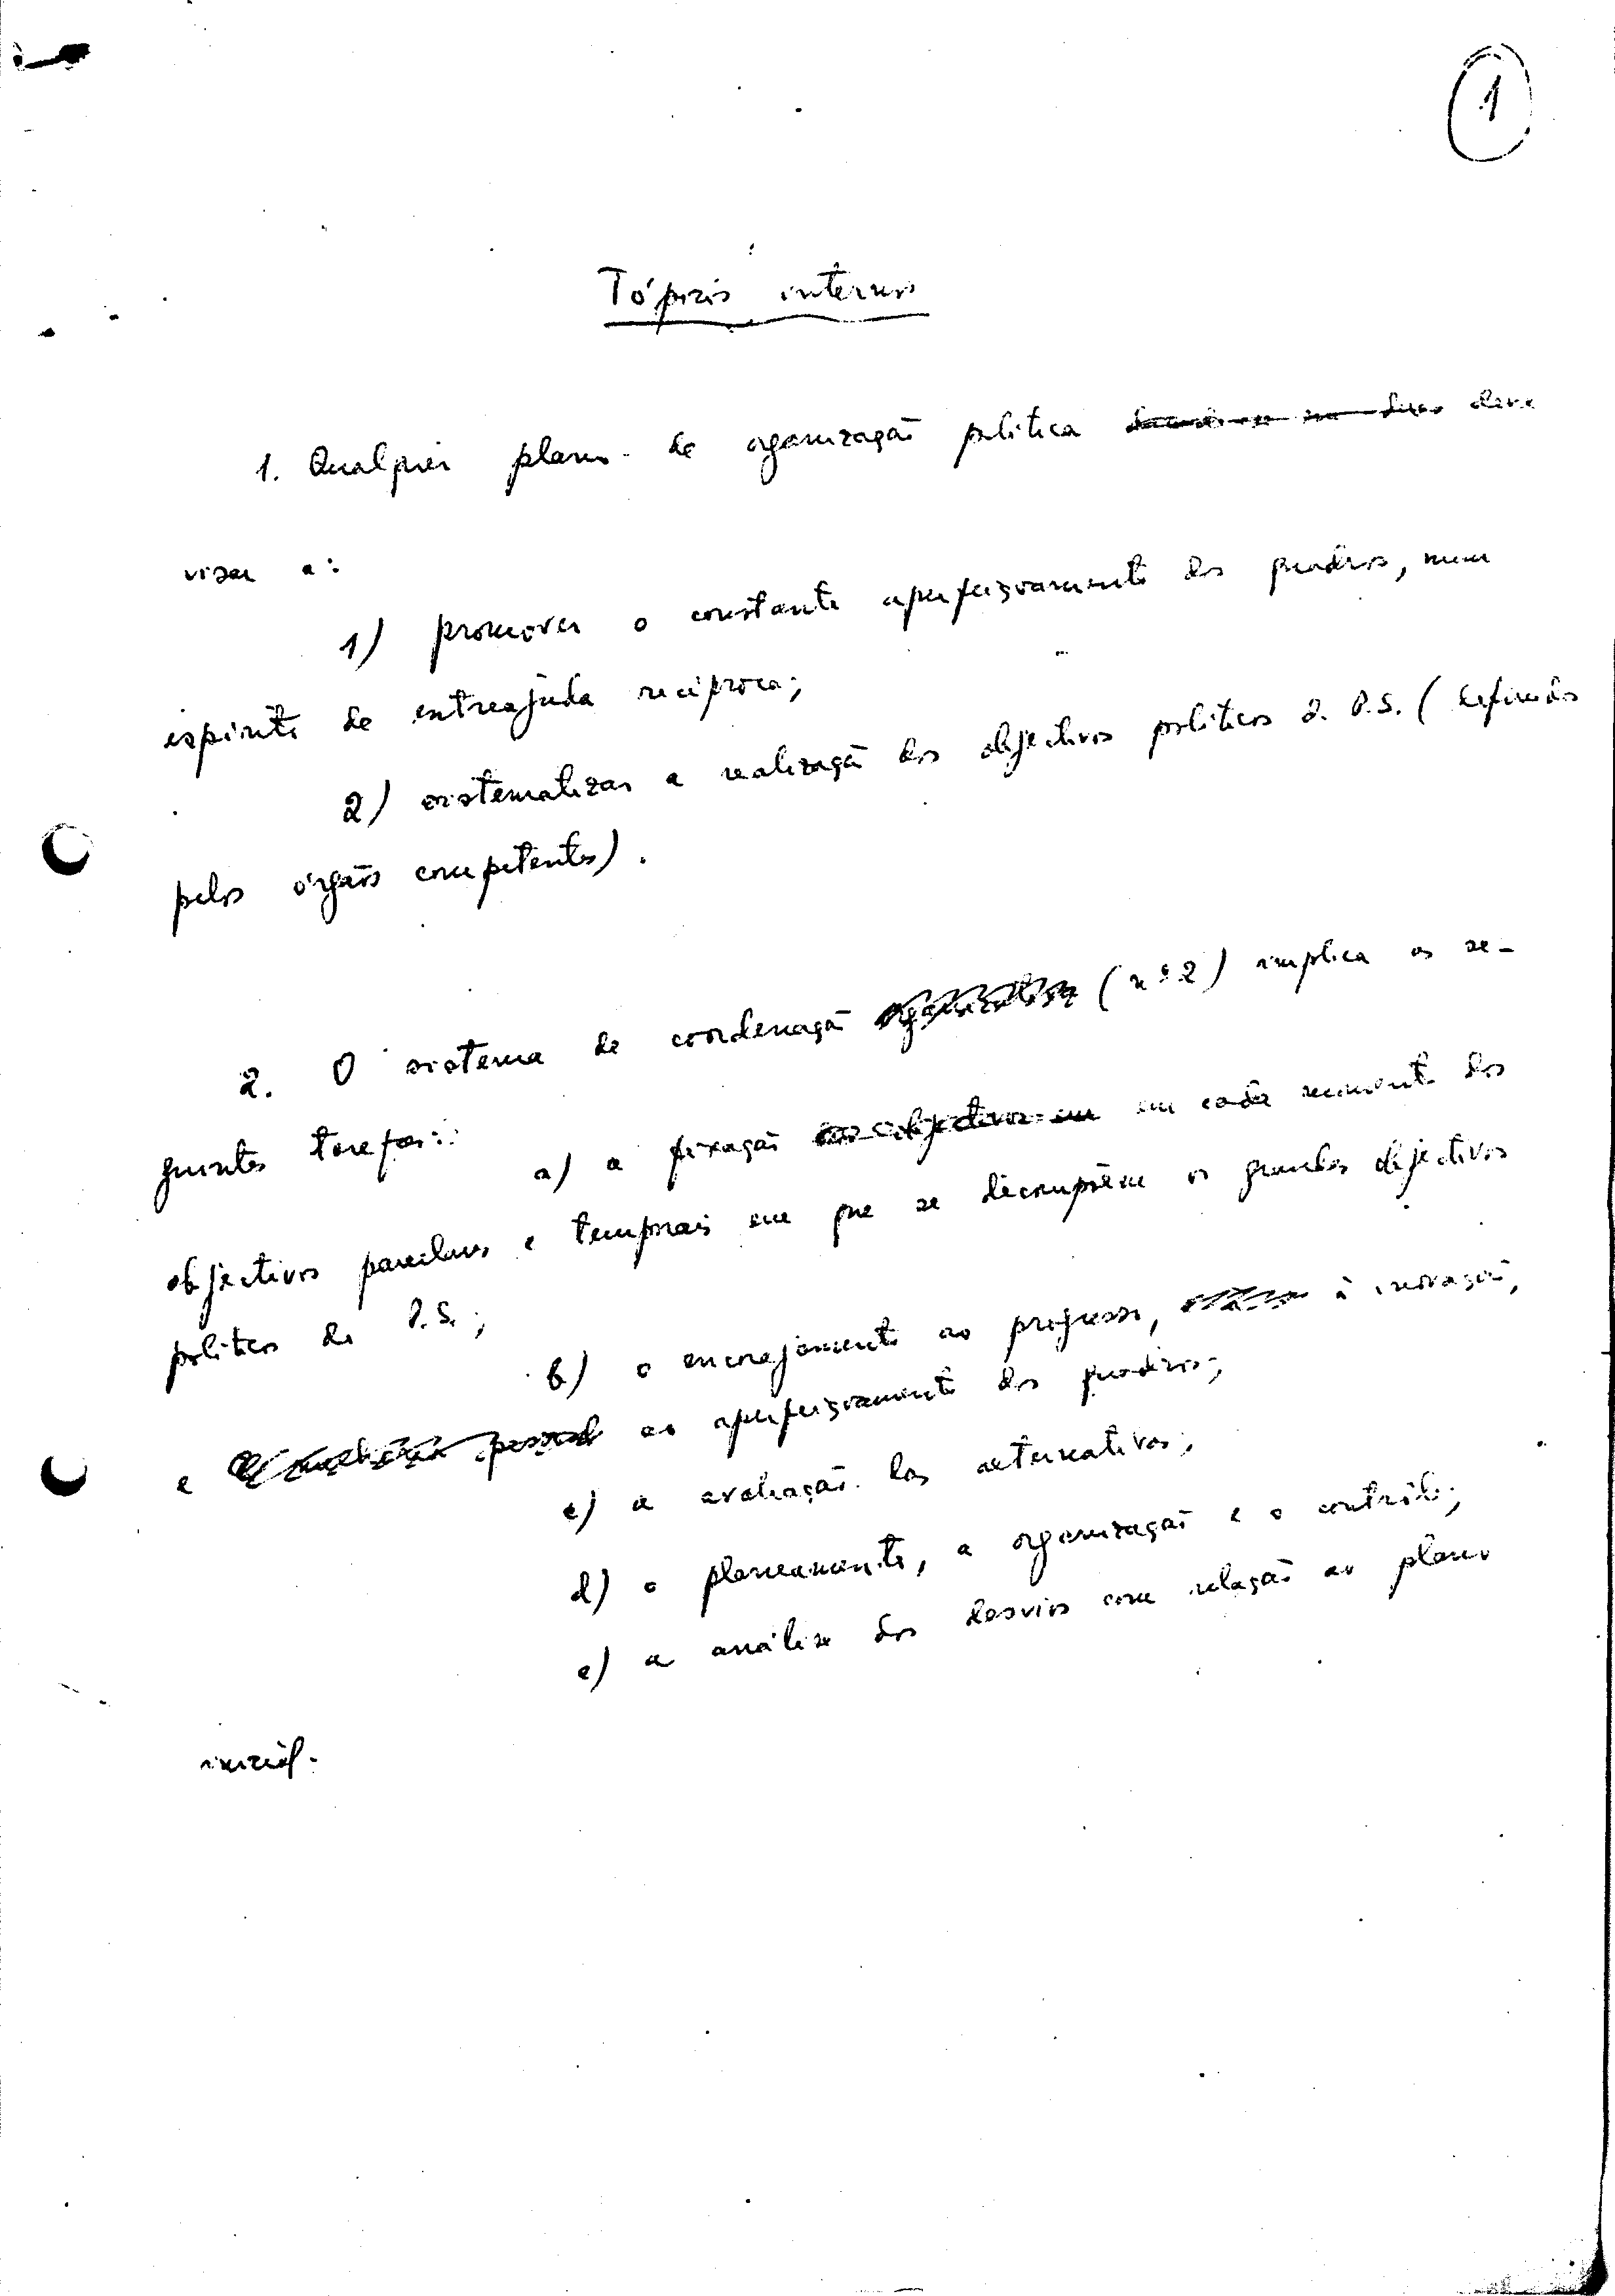 1
Tópicos internos
1. Qualquer plano de organização política deve
visar a:
1) promover o constante aperfeiçoamento dos quadros, num
espírito de entreajuda recíproca;
2) sistematizar a realização dos objectivos políticos d. P.S. (definidos
pelos órgãos competentes).
2. O sistema de coordenação (nº 2) implica as se-
guintes tarefas:
a) a fixação em cada momento dos
objectivos parcelares e temporais em que se decompõem os grandes objectivos
políticos do P.S.;
b) o encorajamento ao progresso, à inovação,
e ao aperfeiçoamento dos quadros;
c) a avaliação das alternativas;
d) o planeamento, a organização e o contrôle;
e) a análise dos desvios com relação ao plano
inicial.